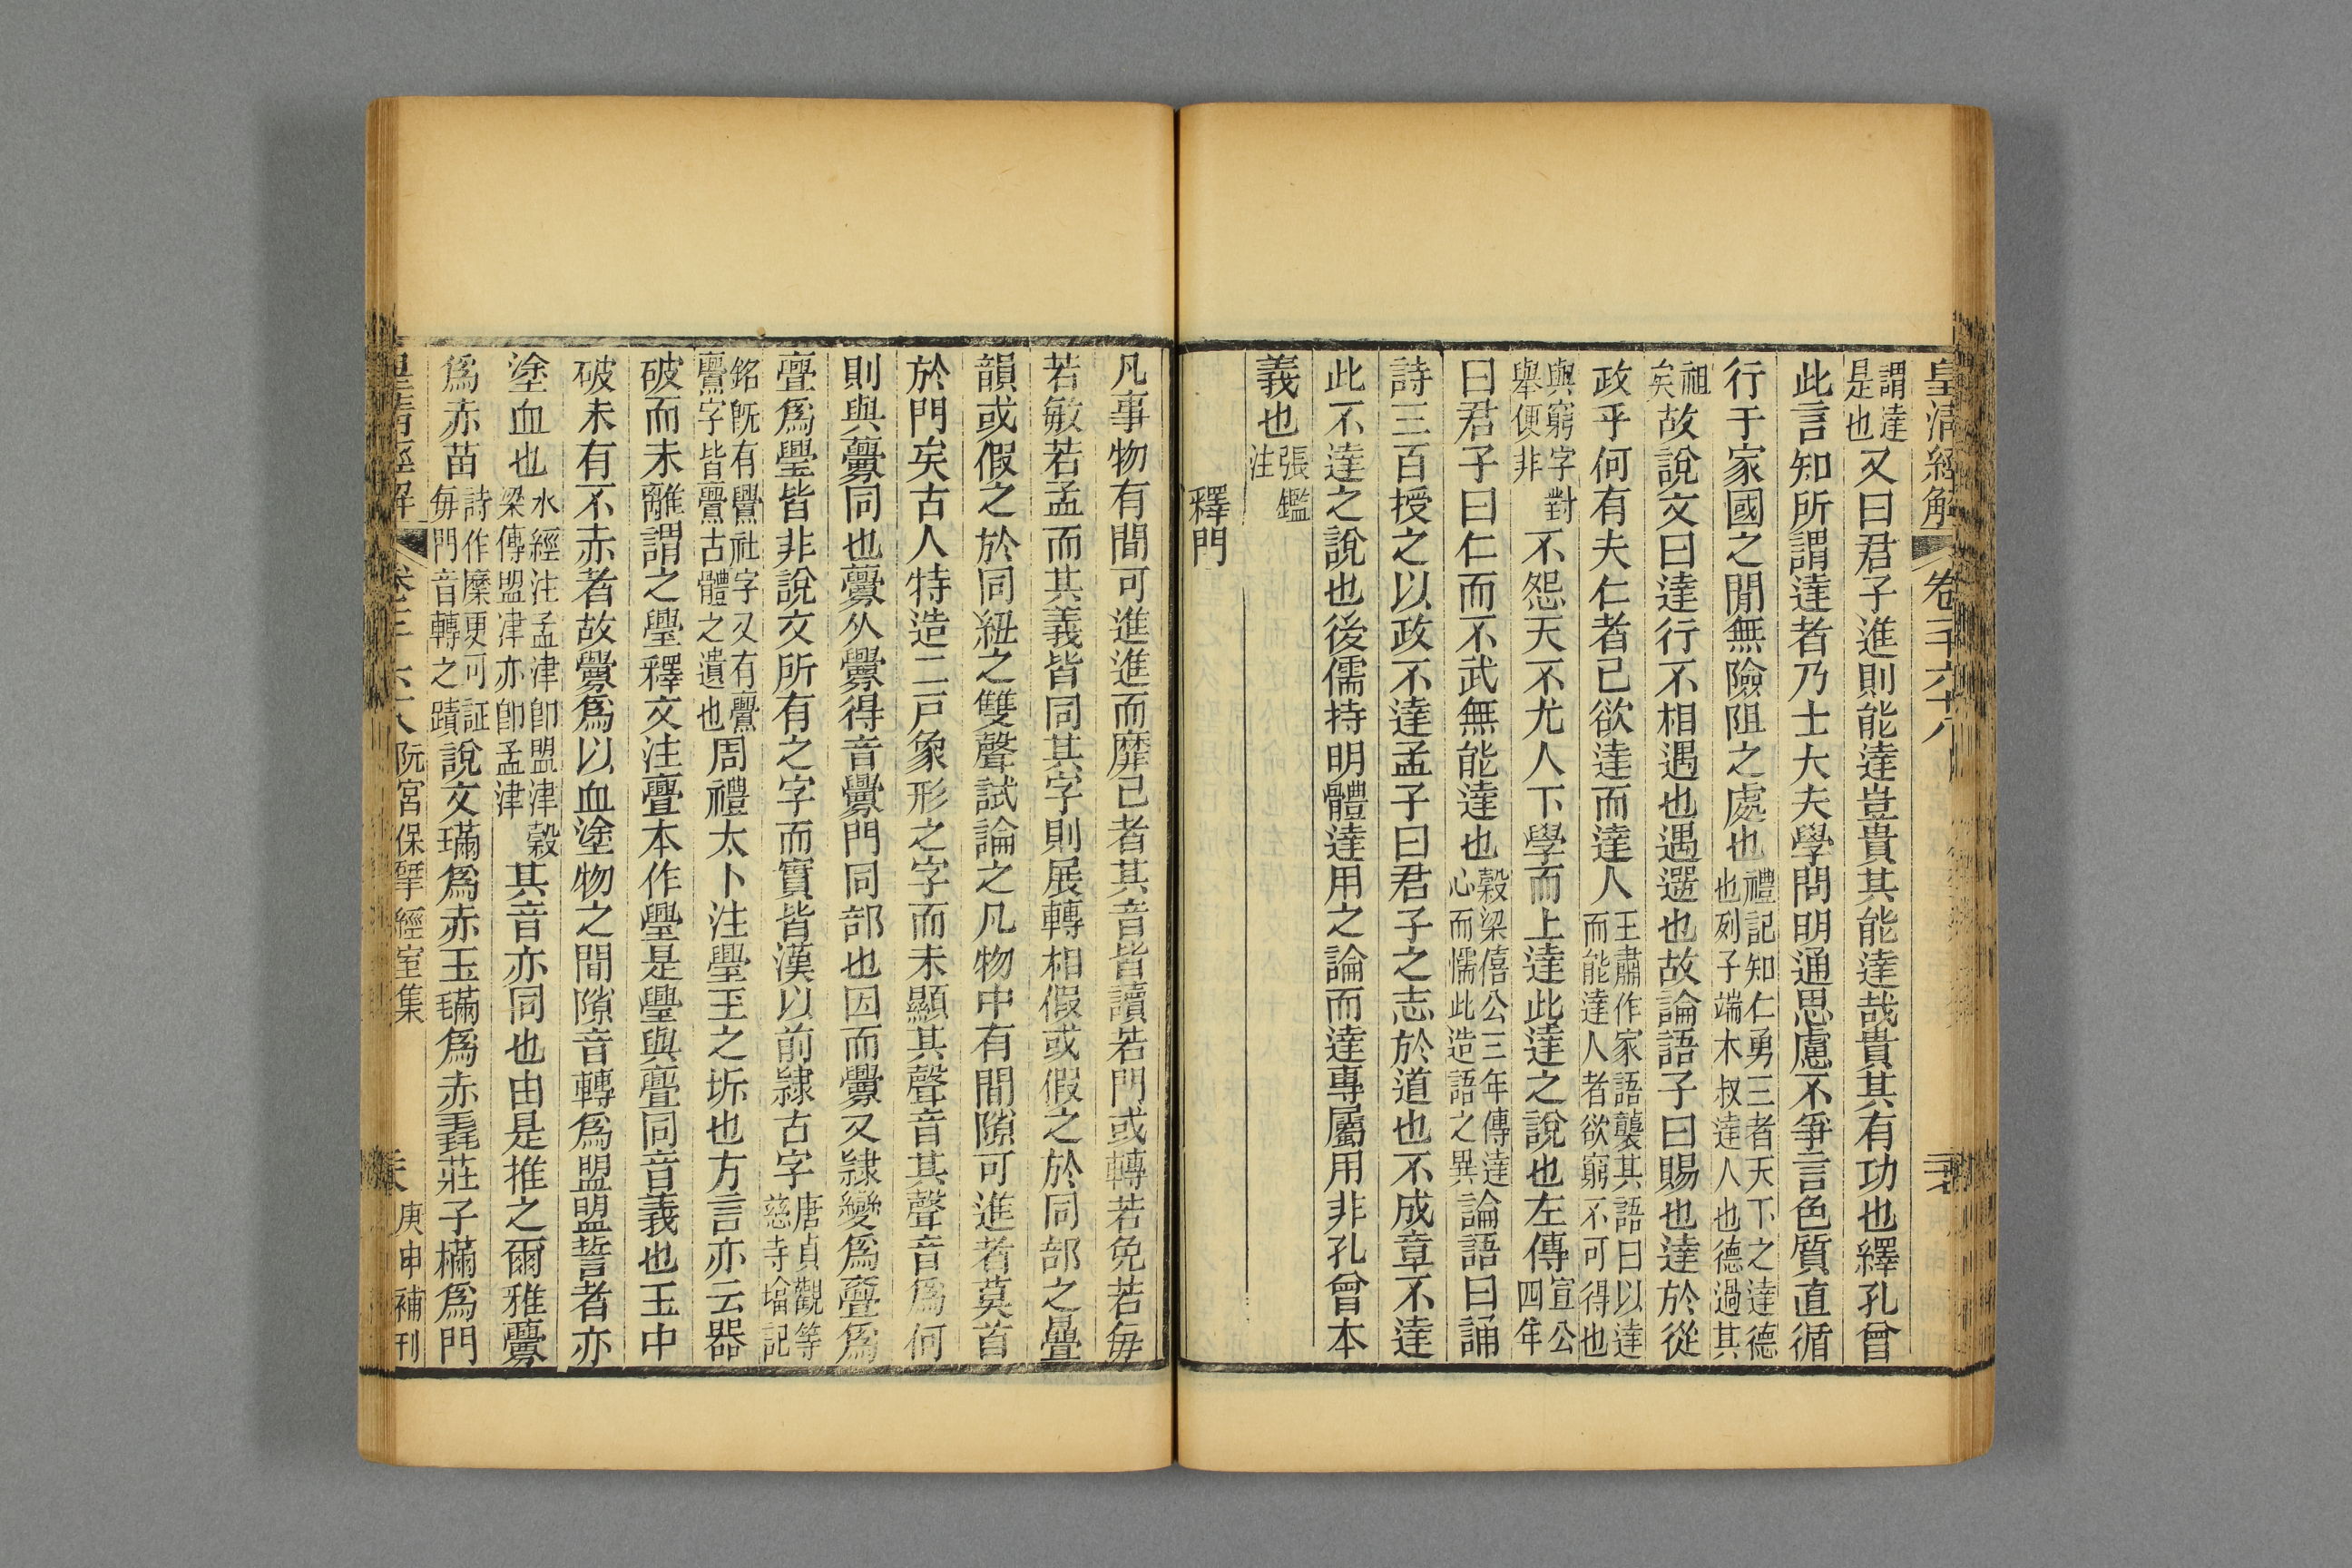 皇清經解 卷千六十八
謂達是也又曰君子進則能達豈貴其能達哉貴其有功也繹孔曾
此言知所謂達者乃士大夫學問明通思慮不爭言色質直循
行于家國之閒無險阻之處也禮記知仁勇三者天下之達德也列子端木叔達人也德過其
祖矣故說文曰達行不相遇也遇選也故論語子曰賜也達於從
政乎何有夫仁者己欲達而達人王肅作家語襲其語曰以達而能達人者欲窮不可得也
與窮字對舉便非不怨天不尤人下學而上達此達之說也左傳宣公四年
曰君子曰仁而不武無能達也穀梁僖公三年傳達心而懦此造語之異論語曰誦
詩三百授之以政不達孟子曰君子之志於道也不成章不達
此不達之說也後儒持明體達用之論而達專屬用非孔曾本
義也張鑑注
釋門
凡事物有間可進進而靡已者其音皆讀若門或轉若免若每
若敏若孟而其義皆同其字則展轉相假或假之於同部之疊
韻或假之於同紐之雙聲試論之凡物中有間隙可進者莫首
於門矣古人特造二戶象形之字而未顯其聲音其聲音為何
則與虋同也虋从釁得音釁門同部也因而釁又隸變為亹為
亹為璺皆非說文所有之字而實皆漢以前隸古字唐貞觀等慈寺塔記
銘旣有舋社字又有亹亹字皆亹古體之遺也周禮太卜注璺玉之坼也方言亦云器
破而未離謂之璺釋文注亹本作璺是璺與亹同音義也玉中
破未有不赤者故釁為以血塗物之間隙音轉為盟盟誓者亦
塗血也水經注孟津卽盟津穀梁傳盟津亦卽孟津其音亦同也由是推之爾雅虋
為赤苗詩作穈更可証每門音轉之蹟說文璊為赤玉𣯩為赤毳莊子樠為門
皇清經解 卷千六十八 阮宮保揅經室集 庚申補刊